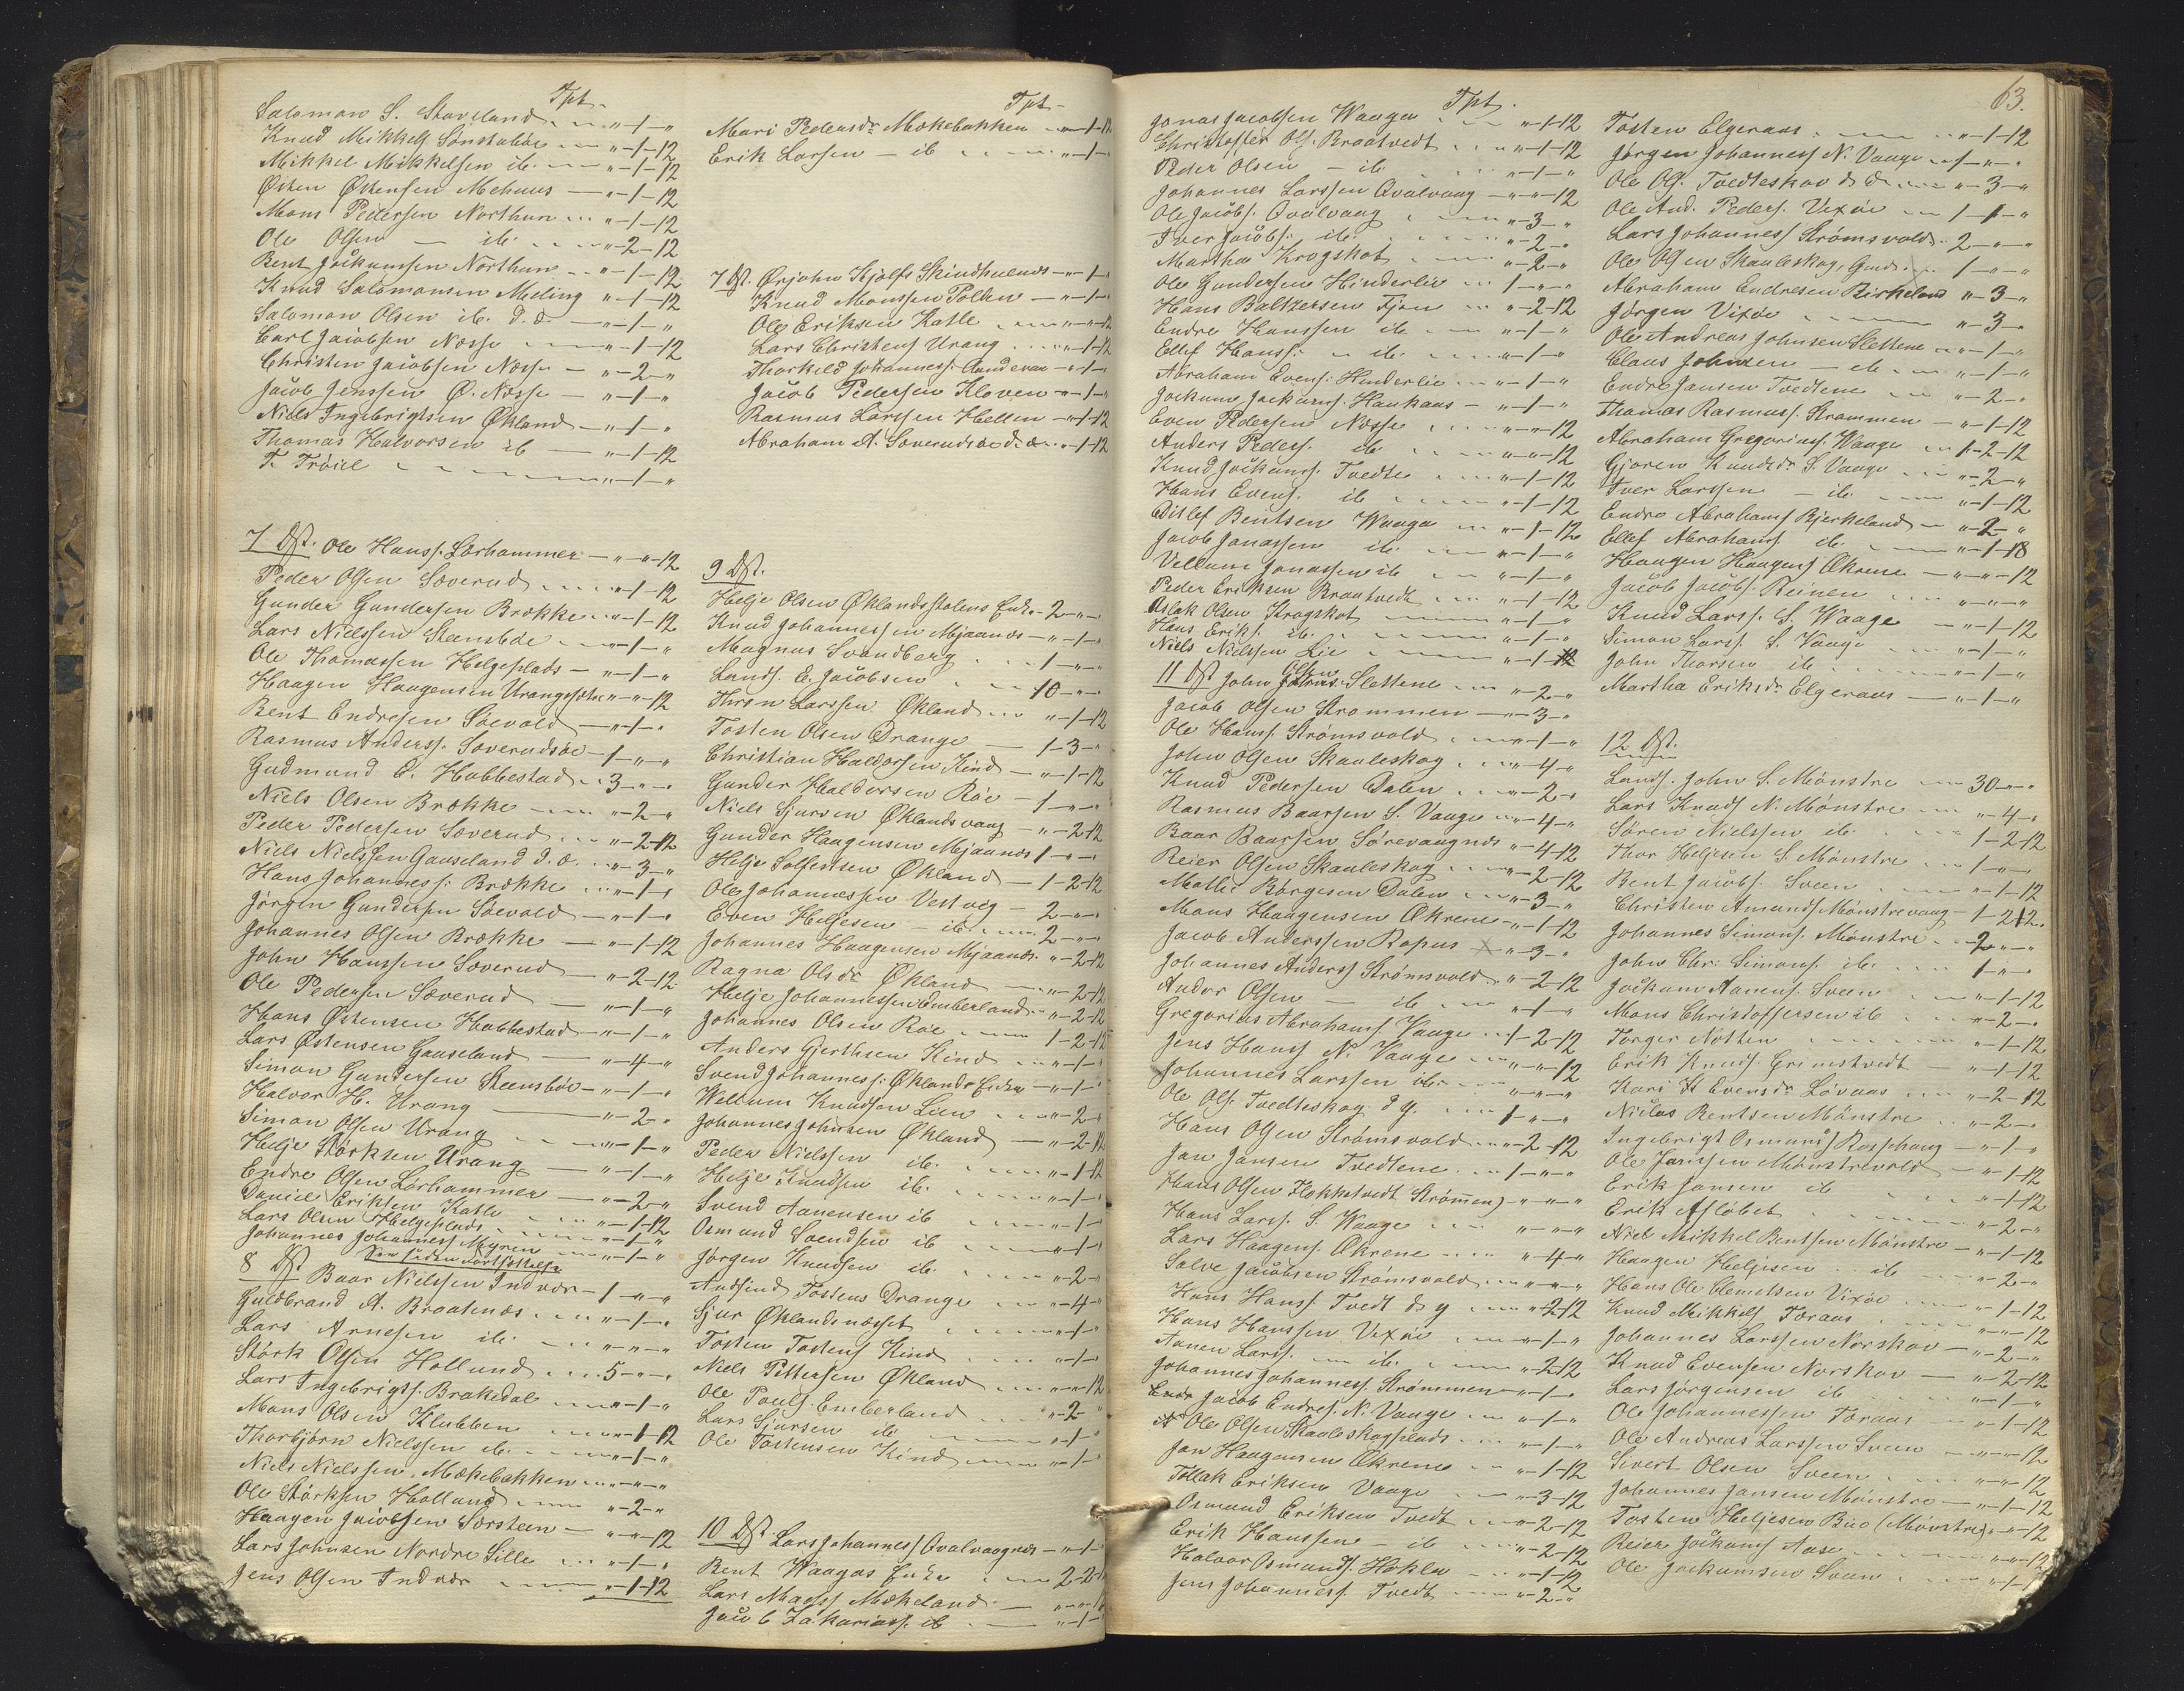 Tpt.
Salomon S. Staveland „-1-„
Knud Mikkels Sønstabøe „-1-12
Mikkel Mikkelsen ib. „-1-12
Østen Østensen Mehuus „-1-12
Mons Pedersen Northun „-1-12
Ole Olsen - ib. „-2-12
Bent Jockumsen Northun „-1-12
Knud Salomonsen Meling „-1-12
Salomon Olsen ib. d. æ. „-1-„
Carl Jacobsen Næsse „-1-12
Christen Jacobsen Næsse „-2-„
Jacob Jenssen Ø. Næsse „-1-„
Niels Ingebrigtsen Økland „-1-„
Thomas Halvorsen ib „-1-12
T. Trøite „-1-„
7 Dst. Ole Hanss. Lørhammer „-„-12
Peder Olsen Sæverud „-1-12
Gunder Gundersen Brække „-1-12
Lars Nielssen Steensbøe „-1-„
Ole Thomassen Helgeplads „-1-„
Haagen Haagensen Urangssæter „-„-12
Bent Endresen Søevold „-1-„
Rasmus Anderss. Sæverudsøe 1-„-„
Gudmund E. Hobbestad 3-„-„
Niels Olsen Brække „-2-„
Peder Pedersen Sæverud „-2-12
Niels Nielssen Gauseland d. æ. „-3-„
Hans Johanness. Brække „-1-„
Jørgen Gundersen Søevold „-1-„
Johannes Olsen Brække „-1-12
John Hanssen Sæverud „-2-12
Ole Pedersen Sæverud „-1-„
Hans Østensen Hobbestad „-1-„
Lars Østensen Gauseland „-4-„
Simon Gundersen Steensbøe „-1-„
Halvor H. Urang „-2-„
Simon Olsen Urang „-1-„
Helje Størksen Urang „-1-„
Endre Olsen Lørhammer „-2-„
Daniel Eriksen Katle „-1-12
Lars Olsen Helgeplads „-1-„
Johannes Johanness Myren „-1-„
See siden Fortsættelse
8 Dst Baar Nielssen Indvær 1-„-„
Guldbrand A. Braatenæs „-1-„
Lars Arnesen ib. „-„-„
Størk Olsen Holland 5-„-„
Lars Ingebrigts. Brakedal „-1-„
Mons Olsen Klubben „-1-12
Thorbjørn Nielssen ib. „-1-„
Niels Nielssen Mækebakken „-„-„
Ole Størksen Holland „-2-„
Haagen Jacobsen Sørsteen „-„-12
Lars Johnsen Nordre Lille „-1-„
Jens Olsen Indvær „-1-12
Tpt.
Mari Pedersdr Mækebakken „-1-12
Erik Larsen - ib „-1-„
7 Dst. Ørjohn Kjølfs Skindhuenæs „-1-„
Knud Monssen Pollen „-1-„
Ole Eriksen Katle „-„-12
Lars Christens Urang „-1-12
Thorkeld Johanness. Aandevan „-1-„
Jacob Pedersen Kloven „-1-„
Rasmus Larssen Hellen „-1-12
Abraham A. Sæverudsøe d. æ. „-1-12
9 Dst.
Helje Olsen Øklandsstølens Enke 2-„-„
Knud Johannessen Mjaanæs „-1-„
Magnus Svendberg 1-„-„
Lands. E. Jacobsen 10-„-„
Thron Larssen Økland „-1-12
Tosten Olsen Drange 1-3-„
Christian Haldorsen Kind „-1-12
Gunder Haldorsen Røe 1-„-„
Niels Sjursen Øklandsvaag „-2-12
Gunder Haagensen Mjaanæs 1-„-„
Helje Solfestsen Økland 1-2-12
Ole Johannessen Vestveg 2-„-„
Even Heljesen - ib 2-„-„
Johannes Haagensen Mjaanæs „-2-12
Ragna Olsdr Økland „-2-12
Helje Johannessen Emberland „-2-12
Johannes Olsen Røe 1-2-12
Anders Gjerthsen Kind „-1-„
Svend Johanness. Øklands Enke „-1-„
Wellum Knudsen Lien „-2-„
Johannes Johnsen Økland „-2-12
Peder Nielssen ib. „-1-12
Helje Knudsen ib. „-1-„
Svend Aanensen ib „-1-„
Osmund Svendsen ib „-1-„
Jørgen Knudsen ib. „-2-„
Audsind Tostens Drange „-4-„
Sjur Øklandsnæsset „-1-„
Tosten Tostens Kind „-1-„
Niels Pettersen Økland „-„-12
Ole Pouls. Emberland „-2-„
Lars Sjursen ib „-1-„
Ole Tostensen Kind „-1-„
10 Dst. Lars Johanness Qvalvaagnes „-1-„
Bent Waages Enke 2-2-„
Lars Madss Mækeland
Jacob Zakariass. ib „-1-„
Tpt.
Jonas Jacobsen Waage „-1-12
Christoffer Ols. Braatvedt „-1-12
Peder Olsen - ib. „-1-„
Johannes Larssen Qvalvaag „-„-12
Ole Jacobs. Qvalvaag „-3-„
Iver Jacobs. ib. „-2-„
Martha Krogskot „-2-„
Ole Gundersen Hinderlie 1-„-„
Hans Baltzersen Fjon „-2-12
Endre Hanssen ib „-1-„
Ellef Hanss. - ib. „-1-„
Abraham Evens. Hinderlie „-1-„
Jockum Jockums. Haukaas „-1-„
Even Pedersen Næsse „-„-12
Anders Peders. ib „-„-12
Knud Jockums. Tvedte „-1-12
Hans Evens. ib „-1-12
Ditlef Bentsen Waage „-1-12
Jacob Jonassen ib. „-1-„
Vellum Jonassen ib „-1-„
Peder Eriksen Braatvedt „-1-12
Aslak Olsen Krogskot „-1-„
Hans Eriks. ib. „-1-„
Niels Nielssen Lie „-1-12
11 Dst John Olsen Slettene „-2-„
Jacob Olsen Strommen „-3-„
Ole Hanss. Strømsvold „-1-„
John Olsen Skauleskog „-4-„
Knud Pedersen Dalen „-2-„
Rasmus Baarsen S. Vaage „-4-„
Baar Baarsen Sørevaagnæs „-4-12
Reier Olsen Skauleskog „-2-12
Mathis Børgesen Dalen „-3-„
Mons Haagensen Økrene „-1-12
Jacob Anderssen Rapus X „-3-„
Johannes Anderss Strømsvold „-2-12
Andor Olsen - ib „-1-„
Gregorius Abrahams. Vaage 1-2-12
Jens Hanss N. Vaage „-„-12
Johannes Larssen ib. „-„-„
Ole Ols. Tvedteskog d y. 1-„-„
Hans Olsen Strømsvold „-2-12
Jan Jansen Tvedtene 1-„-„
Hans Olsen Klokketvedt Strømen) „-„-„
Hans Larss. S. Waage „-„-„
Lars Haagens. Økrene „-4-„
Salve Jacobsen Strømsvold „-„-„
Hans Hanss Tvedt d. y „-2-12
Hans Hanssen Vixøe „-1-„
Aanen Larss. - ib. „-2-12
Johannes Johanness. Strømmen „-1-„
Jacob Endres. N. Vaage „-1-„
Ole Olsen Skauleskogplads „-1-„
Jon Haagensen Økrene „-1-12
Tollak Eriksen Vaage „-3-12
Osmund Eriksen Tvedt „-2-12
Erik Hanssen - ib „-2-12
Halvor Osmunds. Hokla „-1-12
Jens Johanness. Tvedt „-2-„
63.
Tosten Elgeraas „-1-12
Jørgen Johanness N. Vaage 1-„-„
Ole Ols. Tvedteskov d. æ. „-3-„
Ole And. Peders. Vixøe 1-1-„
Lars Johanness Strømsvold 2-„-„
Ole Olsen Skauleskog, Gmd. 1-„-„
Abraham Endresen Birkeland „-3-„
Jørgen Vixøe „-3-„
Ole Andreas Johnsen Slettene „-1-„
Claus Johnsen - ib „-1-„
Endre Jansen Tvedtene „-2-„
Thomas Rasmuss. Strammen „-1-12
Abraham Gregoriuss. Waage 1-2-12
Gjoren Knudsdr S. Vaage „-2-„
Iver Larssen - ib. „-1-12
Endre Abrahams Bjerkeland „-2-„
Ellef Abrahams ib. „-1-18
Haagen Haagens Økrene „-„-12
Jacob Jacobs. Reinen „-„-„
Knud Larss. S. Waage „-1-12
Simon Larss. S. Vaage „-1-„
John Thorsen ib „-1-„
Martha Eriksdr Elgeraas „-1-„
12 Dst.
Lands. John S. Mønstre 30-„-„
Lars Knuds N. Mønstre „-4-„
Søren Nielssen ib. 1-2-12
Thor Heljesen S. Mønstre 1-„-„
Bent Jacobs. Sveen „-1-12
Christen Amunds Mønstrevaag 1-2-12.
Johannes Simons. Mønstre 2-„-„
John Chr. Simons. ib. 1-„-„
Jockum Aanens. Sveen „-1-12
Mons Christoffersen ib „-2-„
Torger Notten „-1-12
Erik Knuds. Grimstvedt „-1-12
Kari K Evensdr Løvaas „-2-12
Niclas Bentsen Mønstre „-2-„
Ingebrigt Osmunds Rosshaug „-1-„
Ole Janssen Mønstrevold „-1-12
Erik Jansen ib „-1-12
Erik Afløbet „-2-„
Niels Mikkel Bentsen Mønstre „-1-12
Haagen Heljesen ib „-2-„
Hans Ole Clemetsen Vixøe „-1-12
Knud Mikkels Toraas „-„-12
Johannes Larssen Norskov „-2-„
Knud Evensen Norskov „-2-12
Lars Jørgensen ib „-1-„
Ole Johannessen Toraas „-1-12
Ole Andreas Larssen Sveen „-„-12
Sivert Olsen Sveen „-„-12
Johannes Jansen Mønstre „-1-12
Tosten Heljesen Bue (Mønstre) „-„-12
Reier Jockums Aase „-„-12
Ole Jockumsen Sveen „-1-